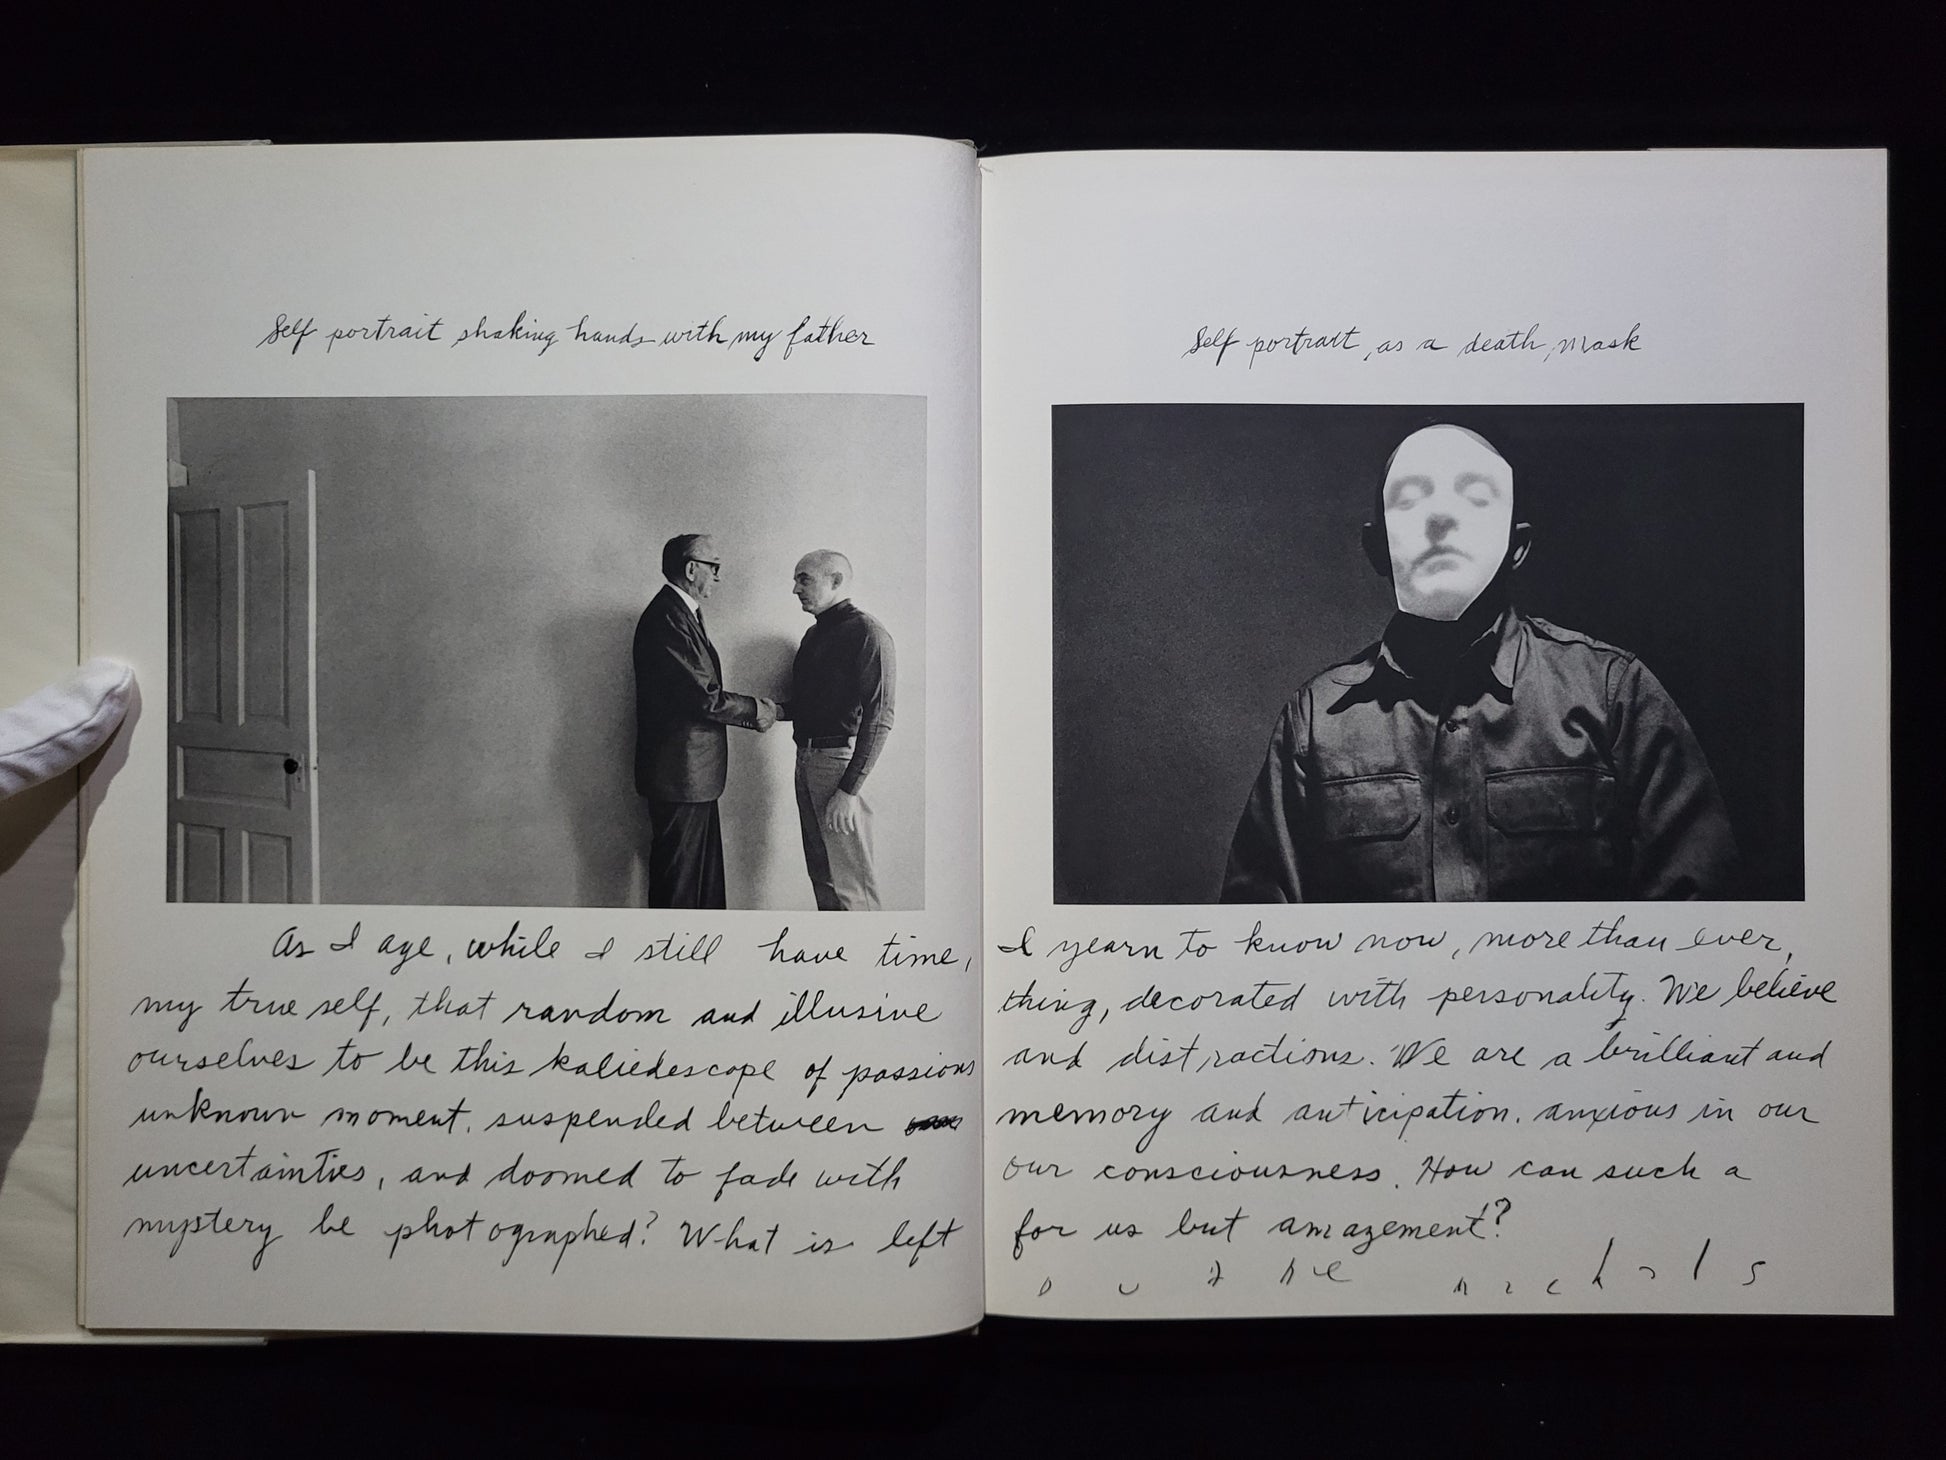 Self portrait shaking hands with my father
Self portrait, as a death mask
As I age, while I still have time, I yearn to know now, more than ever,
my true self, that random and illusive thing, decorated with personality. We believe
ourselves to be this kaliedescope of passions and distractions. We are a brilliant and
unknown moment, suspended between memory and anticipation. anxious in our
uncertainties, and doomed to fade with our consciousness. How can such a
mystery be photographed? What is left for us but amazement?
Duane Michals